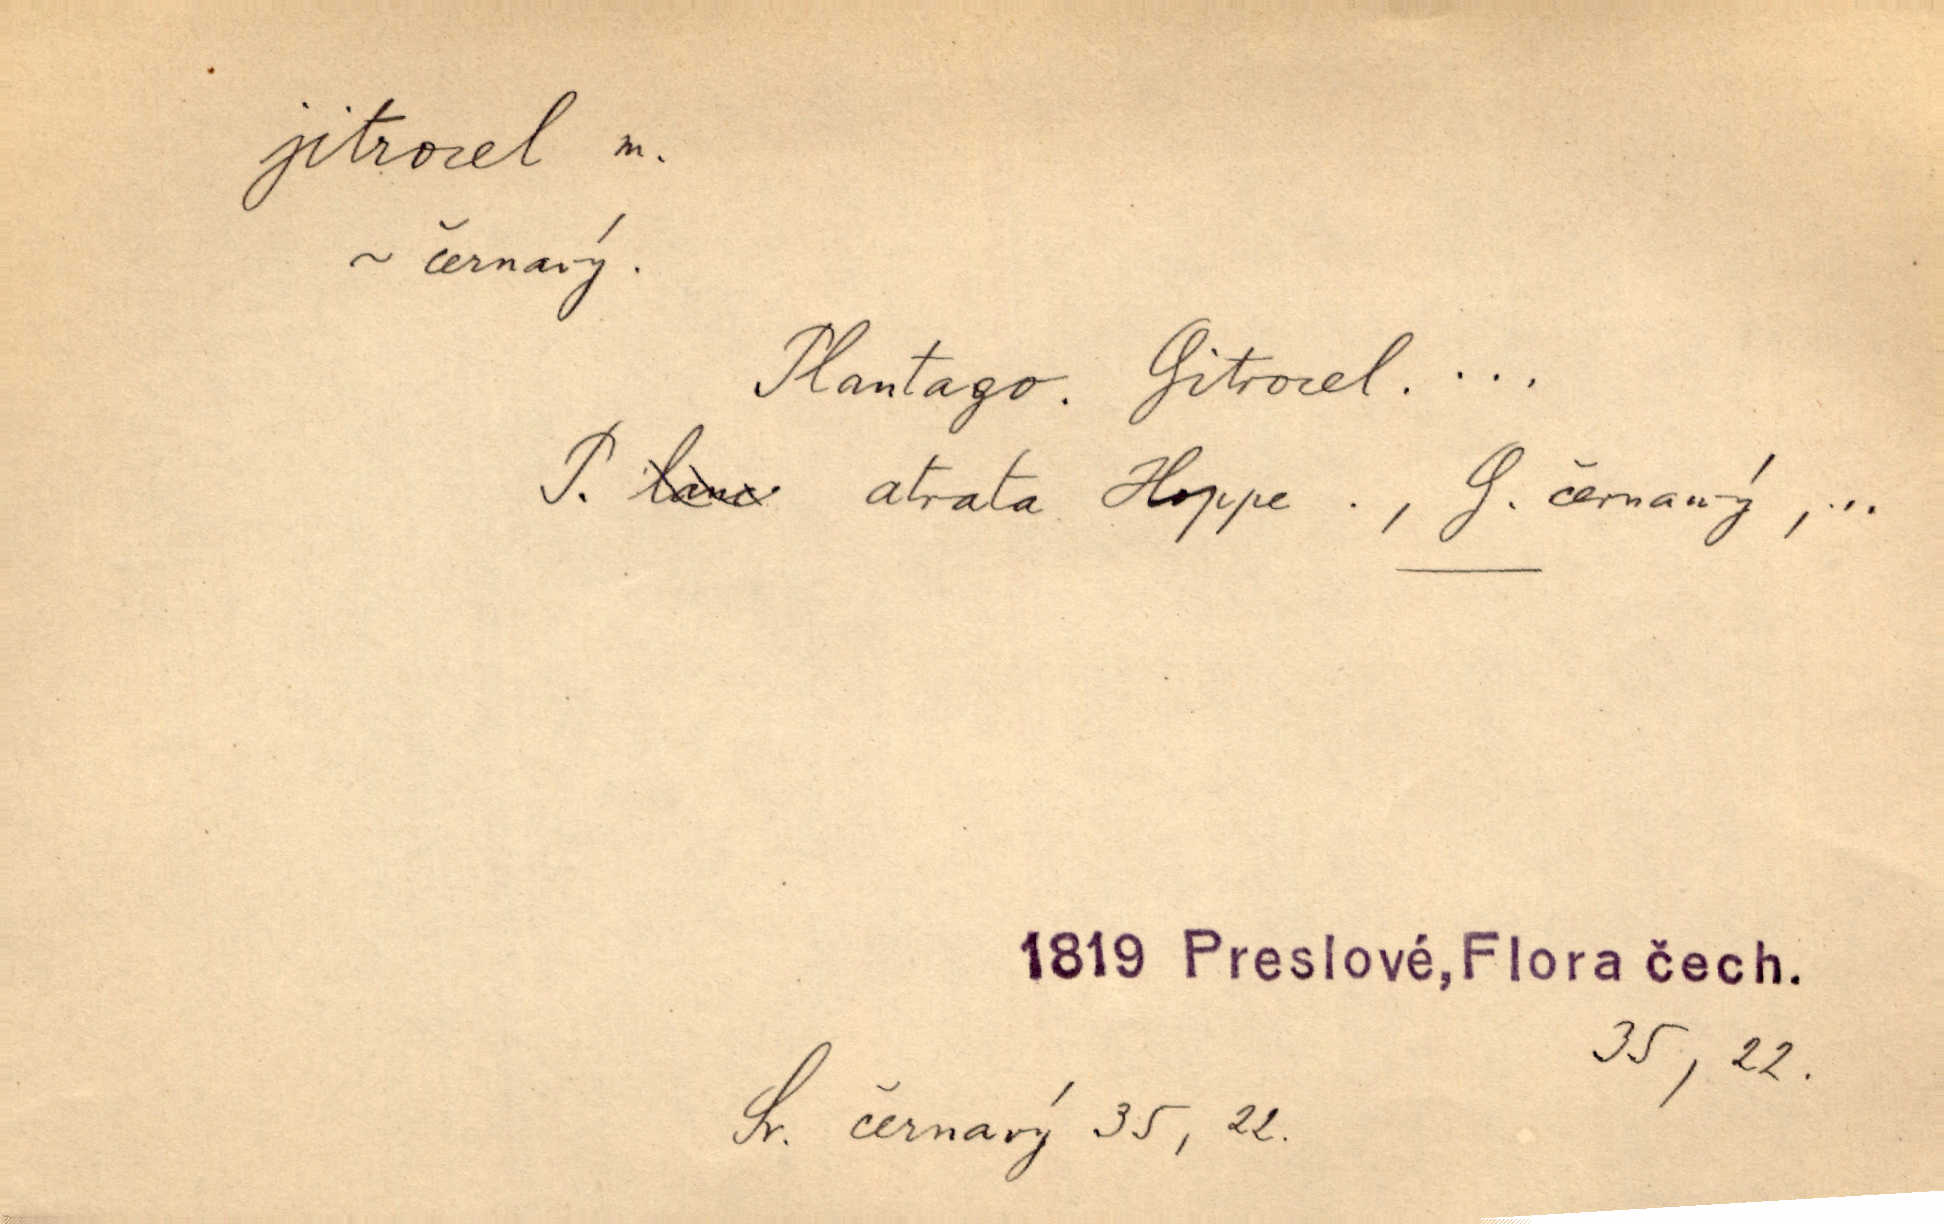 jitrocel m.
~ černavý.
Plantago. Gitrocel. ...
P. lanc atrata Hoppe ., G. černavý, ...
1819 Preslové, Flora čech.
35, 22.
Sr. černavý 35, 22.